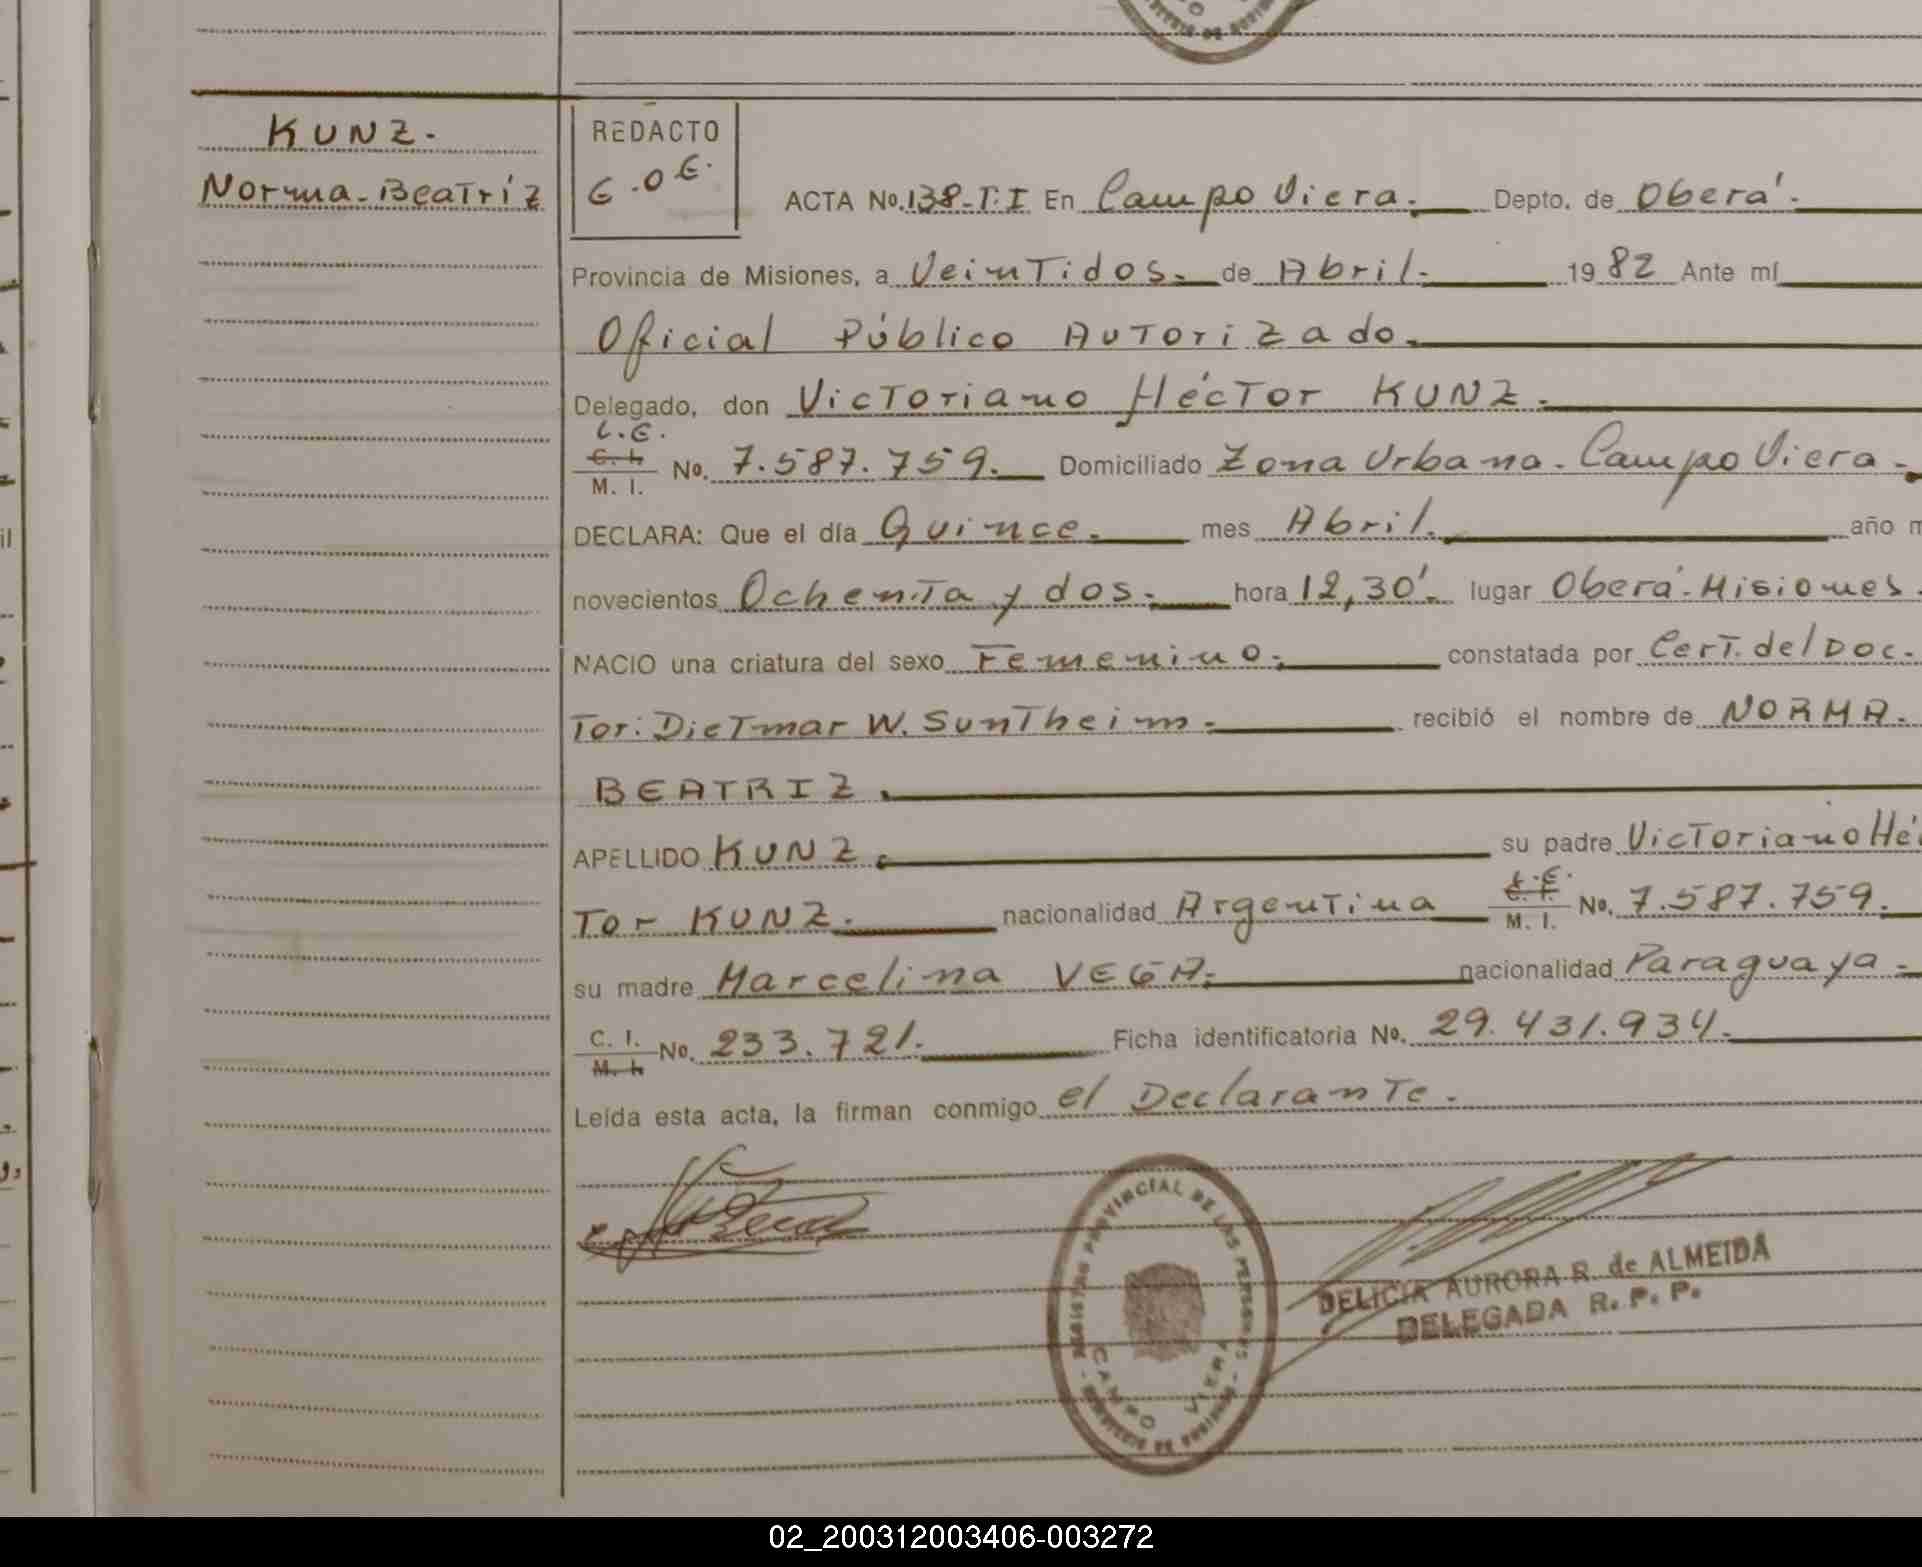 KUNZ.
Norma-Beatríz
REDACTO
E.O.E.
ACTA No. 138-T.I En Campo Viera. Depto. de Oberá.
Provincia de Misiones, a Veintidos. de Abril. 1982 Ante mí
Oficial Público Autorizado.
Delegado, don Victoriano Héctor KUNZ.
L.E.
C. I. M. I. No. 7.587.759. Domiciliado Zona Urbana. Campo Viera.
DECLARA: Que el día Quince. mes Abril. año m
novecientos Ochenta y dos. hora 12,30'. lugar Oberá-Misiones.
NACIO una criatura del sexo Femenino. constatada por Cert. del Doc-
tor: Dietmar W. Suntheim. recibió el nombre de NORMA.
BEATRIZ.
APELLIDO KUNZ. su padre Victoriano Héc
tor KUNZ. nacionalidad Argentina L.E. C. I. M. I. No. 7.587.759.
su madre Marcelina VEGA. nacionalidad Paraguaya.
C. I. M. I. No. 233.721. Ficha identificatoria No. 29.431.934.
Leída esta acta, la firman conmigo el Declarante.
REGISTRO PROVINCIAL DE LAS PERSONAS
CAMPO VIERA
DELICIA AURORA R. de ALMEIDA
DELEGADA R. P. P.
02_200312003406-003272